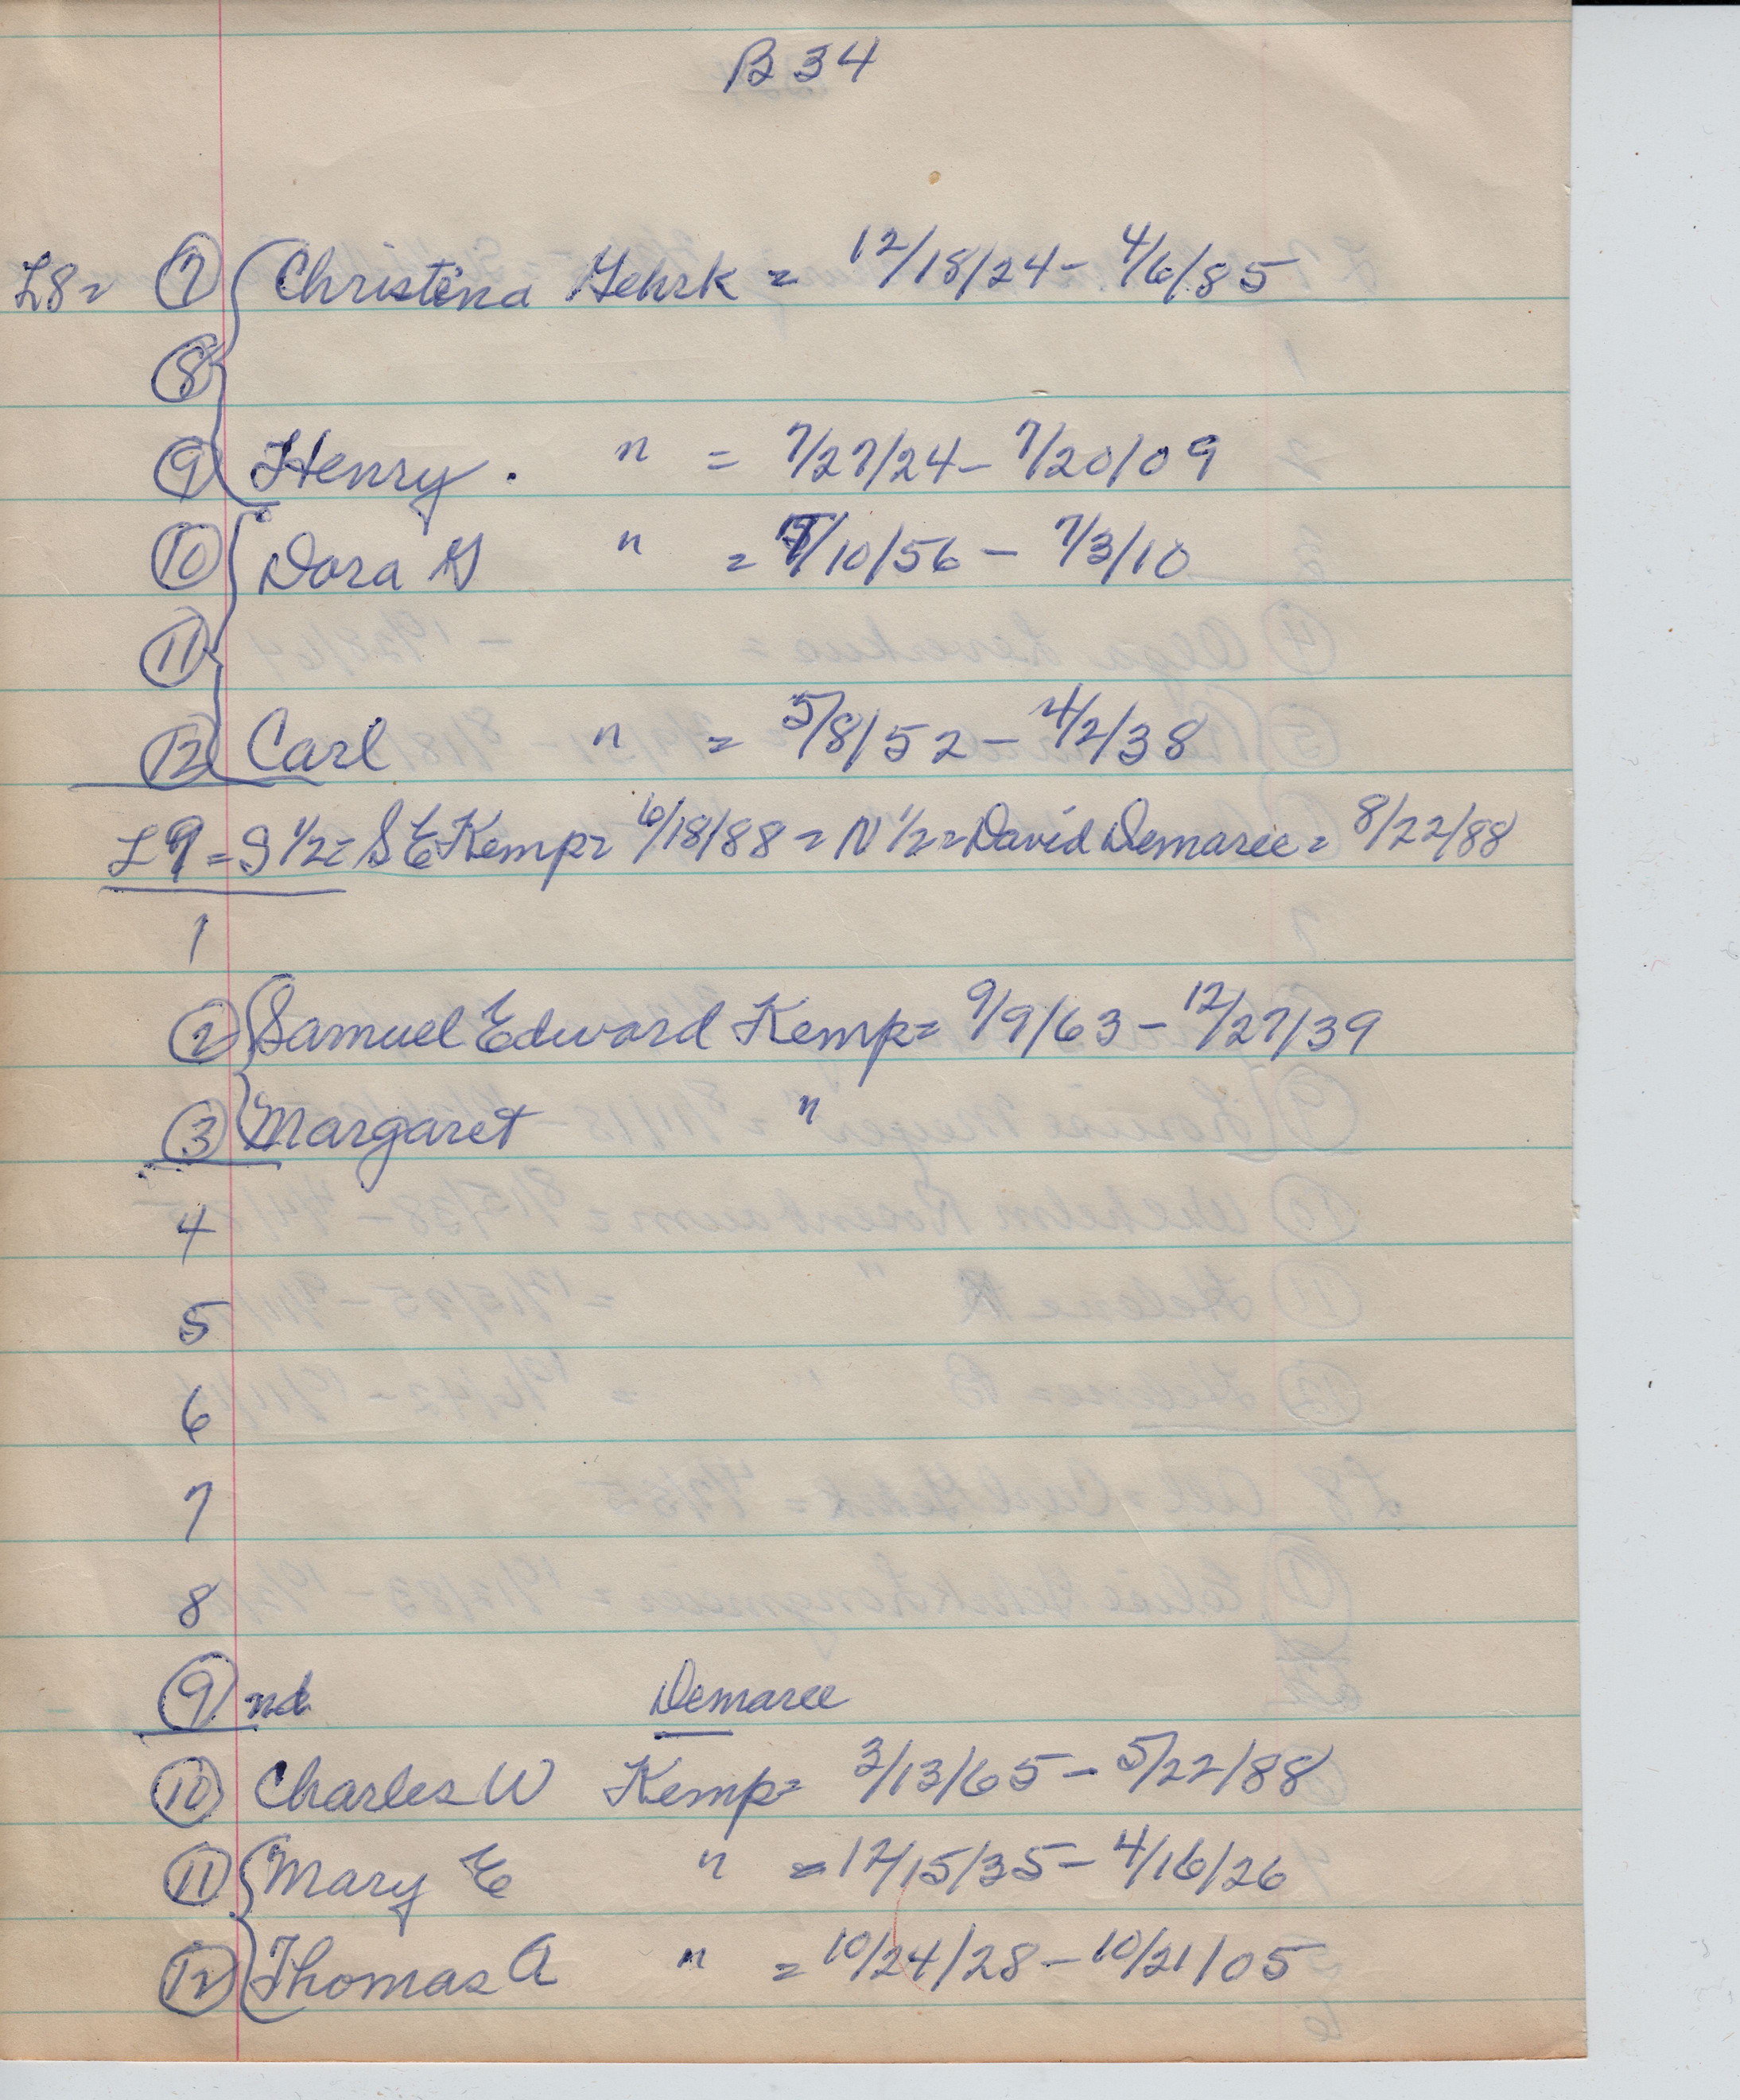 B 34
L8 = 7 Christina Gehrk = 12/18/24 - 4/6/85
8
9 Henry. " = 7/27/24 - 7/20/09
10 Dora G " = /10/56 - 7/3/10
11
12 Carl " = 5/8/52 - 4/2/38
L9 = S 1/2 = S E Kemp = 6/18/88 = N 1/2 = David Demaree = 8/22/88
1
2 Samuel Edward Kemp = 9/9/63 - 12/27/39
3 Margaret "
4
5
6
7
8
9 nd. Demaree
10 Charles W Kemp = 3/13/65 - 5/22/88
11 Mary E " = 12/15/35 - 4/16/26
12 Thomas A " = 10/24/28 - 10/21/05